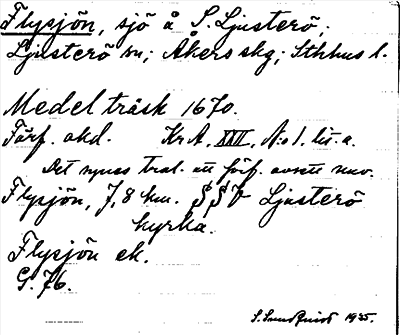 Flysjön, sjö å S. Ljusterö,
Ljusterö sn; Åkers skg; Sthlms l.
Medel träsk 1670.
Förf. okd. Kr.A. XXII, A:o 1. lit. a.
Det synes trol. att förf. avsett nuv.
Flysjön, 7,8 km. SSV Ljusterö
kyrka.
Flysjön ek.
G. 76.
S. Sundquist 1935.